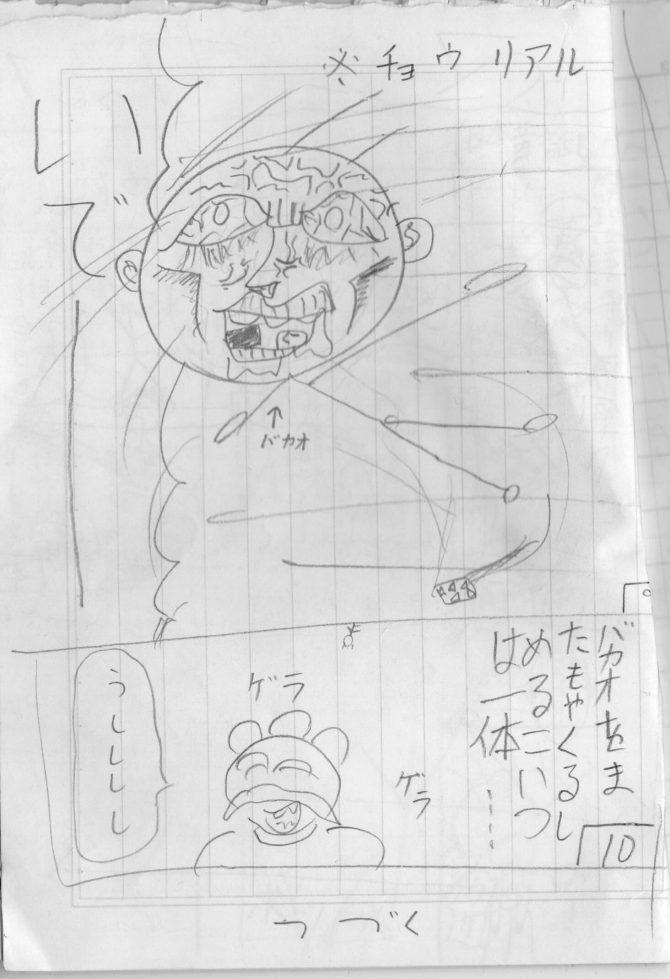 ※チョウ リアル
いでー
↑
バカオ
バカオをま
たもやくるし
めるこいつ
は一体……
ゲラ
ゲラ
うしししし
10
つづく